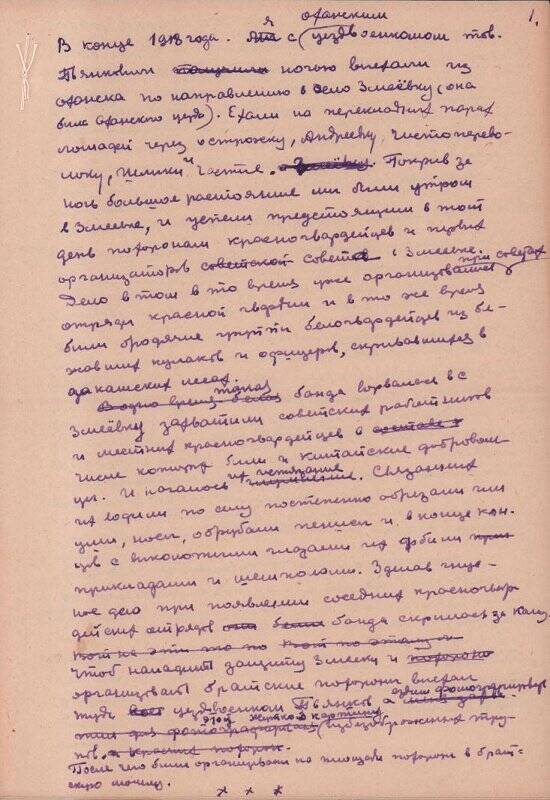 1.
я оханским
В конце 1918 года. с уездвоенкомом тов.
Пьянковым ночью выехали из
оханска по направлению в село Змеёвку (она
была оханского уезда). Ехали на перекладных парах
лошадей через острожку, Андреевку, чистопереволоку
и частые. Змеёвку. Покрыв за
ночь большое растояние мы были утром
в Змеевке, и успели предстоящим в тот
день похоронам красногвардейцев и первых
организаторов советской совета в Змеевке.
Дело в том в то время уже организовались при советах
отряды красной гвардии и в то же время
были бродячие группы белогвардейцев из бе-
жавших кулаков и офицеров, скрывавшихся в
закамских лесах.
В одно время такая банда ворвалась в с
Змеёвку захватили советских работников
и местных красногвардейцев в
числе которых были и китайские доброволь-
цы. И началось их истязание. Связанных
их водили по селу постепенно обрезали им
уши, носы, обрубали пальцы и в конце кон-
цов с выколотыми глазами их добили
прикладами и шомполами. Зделав гнус-
ное дело при появлении соседних красногвар
дейских отрядов банда скрылась за Каму.
чтоб наладить защиту Змеевки и
организовать братские похороны выехал
туда уездвоенком Пьянков а
этой жуткой картины
(изуображенных тру-
пов.
После чего были организованы на площади похороны в брат-
скую могилу.
х х х